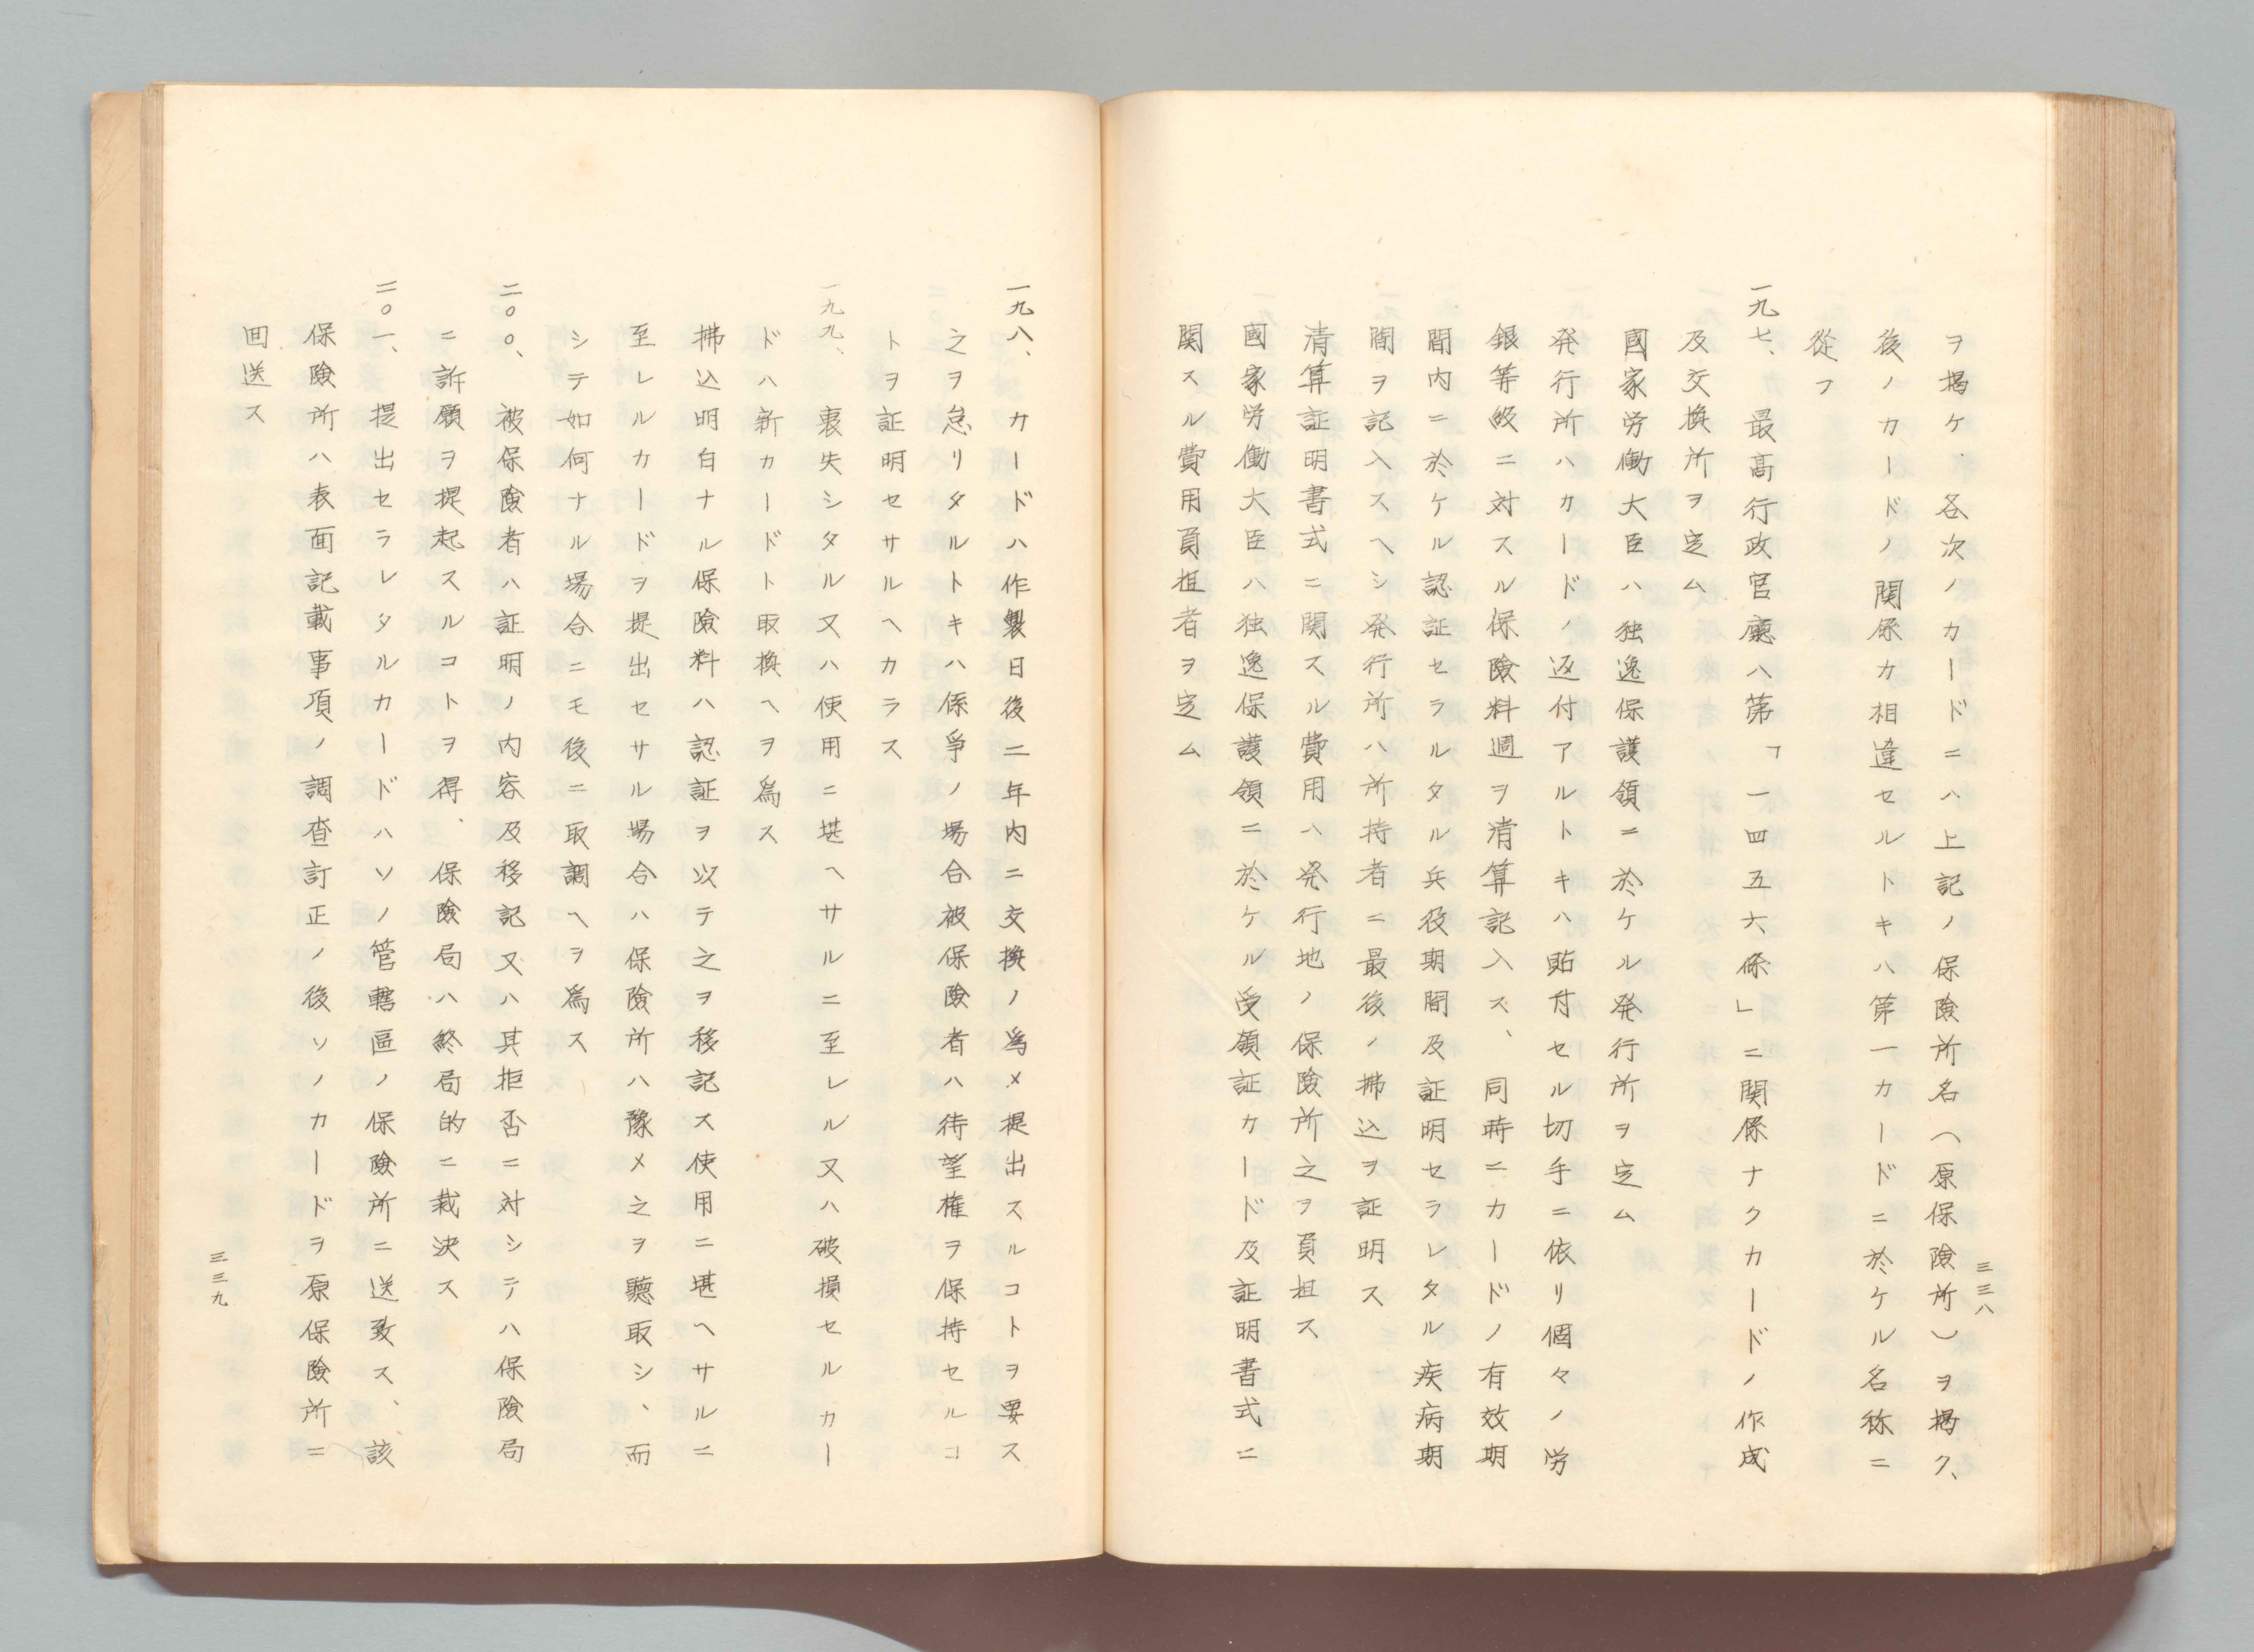 ヲ掲ケ、各次ノカードニハ上記ノ保險所名（原保險所）ヲ掲ク、
後ノカードノ関係カ相違セルトキハ第一カードニ於ケル名称ニ
從フ
一九七、最高行政官廳ハ第「一四五六條」ニ関係ナクカードノ作成
及交換所ヲ定ム
國家労働大臣ハ独逸保護領ニ於ケル発行所ヲ定ム
発行所ハカードノ返付アルトキハ貼付セル切手ニ依リ個々ノ労
銀等級ニ対スル保險料週ヲ清算記入ス、同時ニカードノ有效期
間内ニ於ケル認証セラルタル兵役期間及証明セラレタル疾病期
間ヲ記入スヘシ発行所ハ所持者ニ最後ノ拂込ヲ証明ス
清算証明書式ニ関スル費用ハ発行地ノ保險所之ヲ負担ス
國家労働大臣ハ独逸保護領ニ於ケル受領証カード及証明書式ニ
関スル費用負担者ヲ定ム
三三八
一九八、カードハ作製日後二年内ニ交換ノ爲メ提出スルコトヲ要ス
之ヲ怠リタルトキハ係爭ノ場合被保險者ハ待望權ヲ保持セルコ
トヲ証明セサルヘカラス
一九九、喪失シタル又ハ使用ニ堪ヘサルニ至レル又ハ破損セルカー
ドハ新カードト取換ヘヲ爲ス
拂込明白ナル保險料ハ認証ヲ以テ之ヲ移記ス使用ニ堪ヘサルニ
至レルカードヲ提出セサル場合ハ保險所ハ豫メ之ヲ聽取シ、而
シテ如何ナル場合ニモ後ニ取調ヘヲ爲ス
二〇〇、被保險者ハ証明ノ内容及移記又ハ其拒否ニ対シテハ保險局
ニ訴願ヲ提起スルコトヲ得、保險局ハ終局的ニ裁決ス
二〇一、提出セラレタルカードハソノ管轄區ノ保險所ニ送致ス、該
保險所ハ表面記載事項ノ調査訂正ノ後ソノカードヲ原保險所ニ
回送ス
三三九